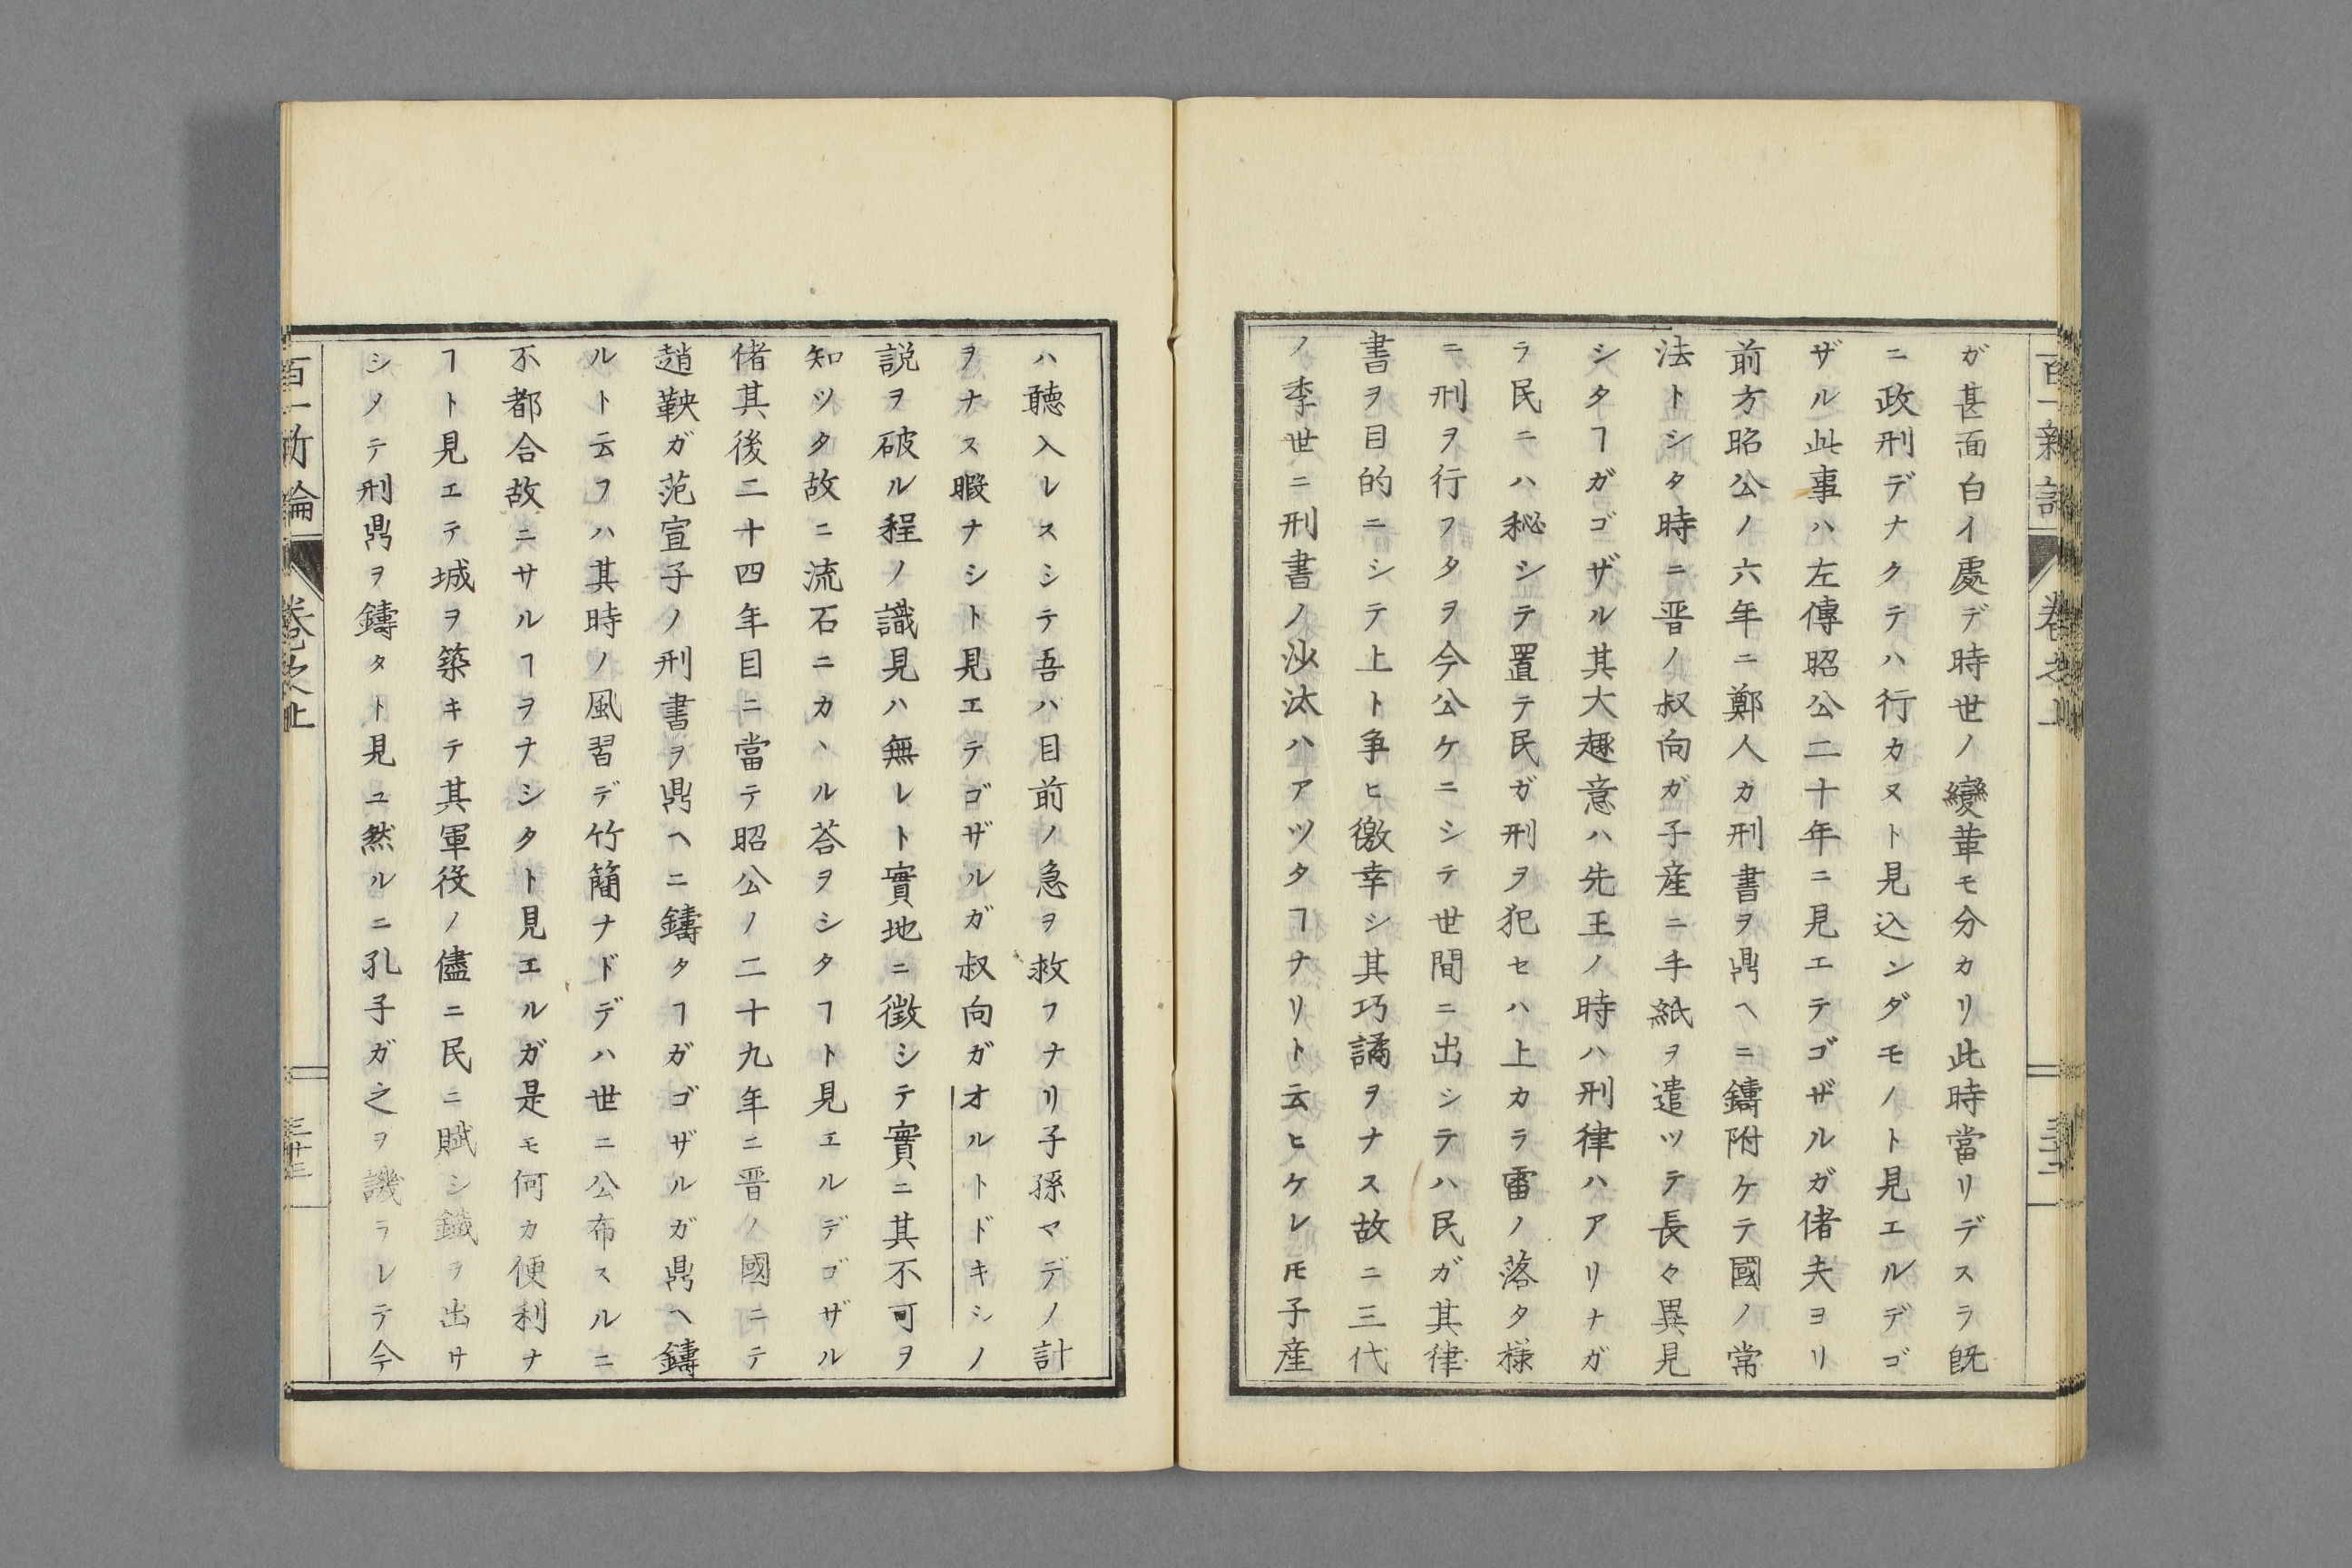 ガ甚面白イ處デ時世ノ變革モ分カリ此時當リデスラ既
ニ政刑デナクテハ行カヌト見込ンダモノト見エルデゴ
ザル此事ハ左傳昭公二十年ニ見エテゴザルガ偖夫ヨリ
前方昭公ノ六年ニ鄭人カ刑書ヲ鼎ヘニ鑄附ケテ國ノ常
法トシタ時ニ晋ノ叔向ガ子産ニ手紙ヲ遣ツテ長々異見
シタヿガゴザル其大趣意ハ先王ノ時ハ刑律ハアリナガ
ラ民ニハ秘シテ置テ民ガ刑ヲ犯セハ上カラ雷ノ落タ様
ニ刑ヲ行フタヲ今公ケニシテ世間ニ出シテハ民ガ其律
書ヲ目的ニシテ上ト争ヒ徼幸シ其巧譎ヲナス故ニ三代
ノ季世ニ刑書ノ沙汰ハアツタヿナリト云ヒケレ𪜈子産
ハ聴入レスシテ吾ハ目前ノ急ヲ救フナリ子孫マデノ計
ヲナス暇ナシト見エテゴザルガ叔向ガオルトドキシノ
説ヲ破ル程ノ識見ハ無レト實地ニ徴シテ實ニ其不可ヲ
知ツタ故ニ流石ニカヽル荅ヲシタヿト見エルデゴザル
偖其後二十四年目ニ當テ昭公ノ二十九年ニ晋ノ國ニテ
趙鞅ガ范宣子ノ刑書ヲ鼎ヘニ鑄タヿガゴザルガ鼎ヘ鑄
ルト云フハ其時ノ風習デ竹簡ナドデハ世ニ公布スルニ
不都合故ニサルヿヲナシタト見エルガ是モ何カ便利ナ
ヿト見エテ城ヲ築キテ其軍役ノ儘ニ民ニ賦シ鐵ヲ出サ
シメテ刑鼎ヲ鑄タト見ユ然ルニ孔子ガ之ヲ譏ラレテ今